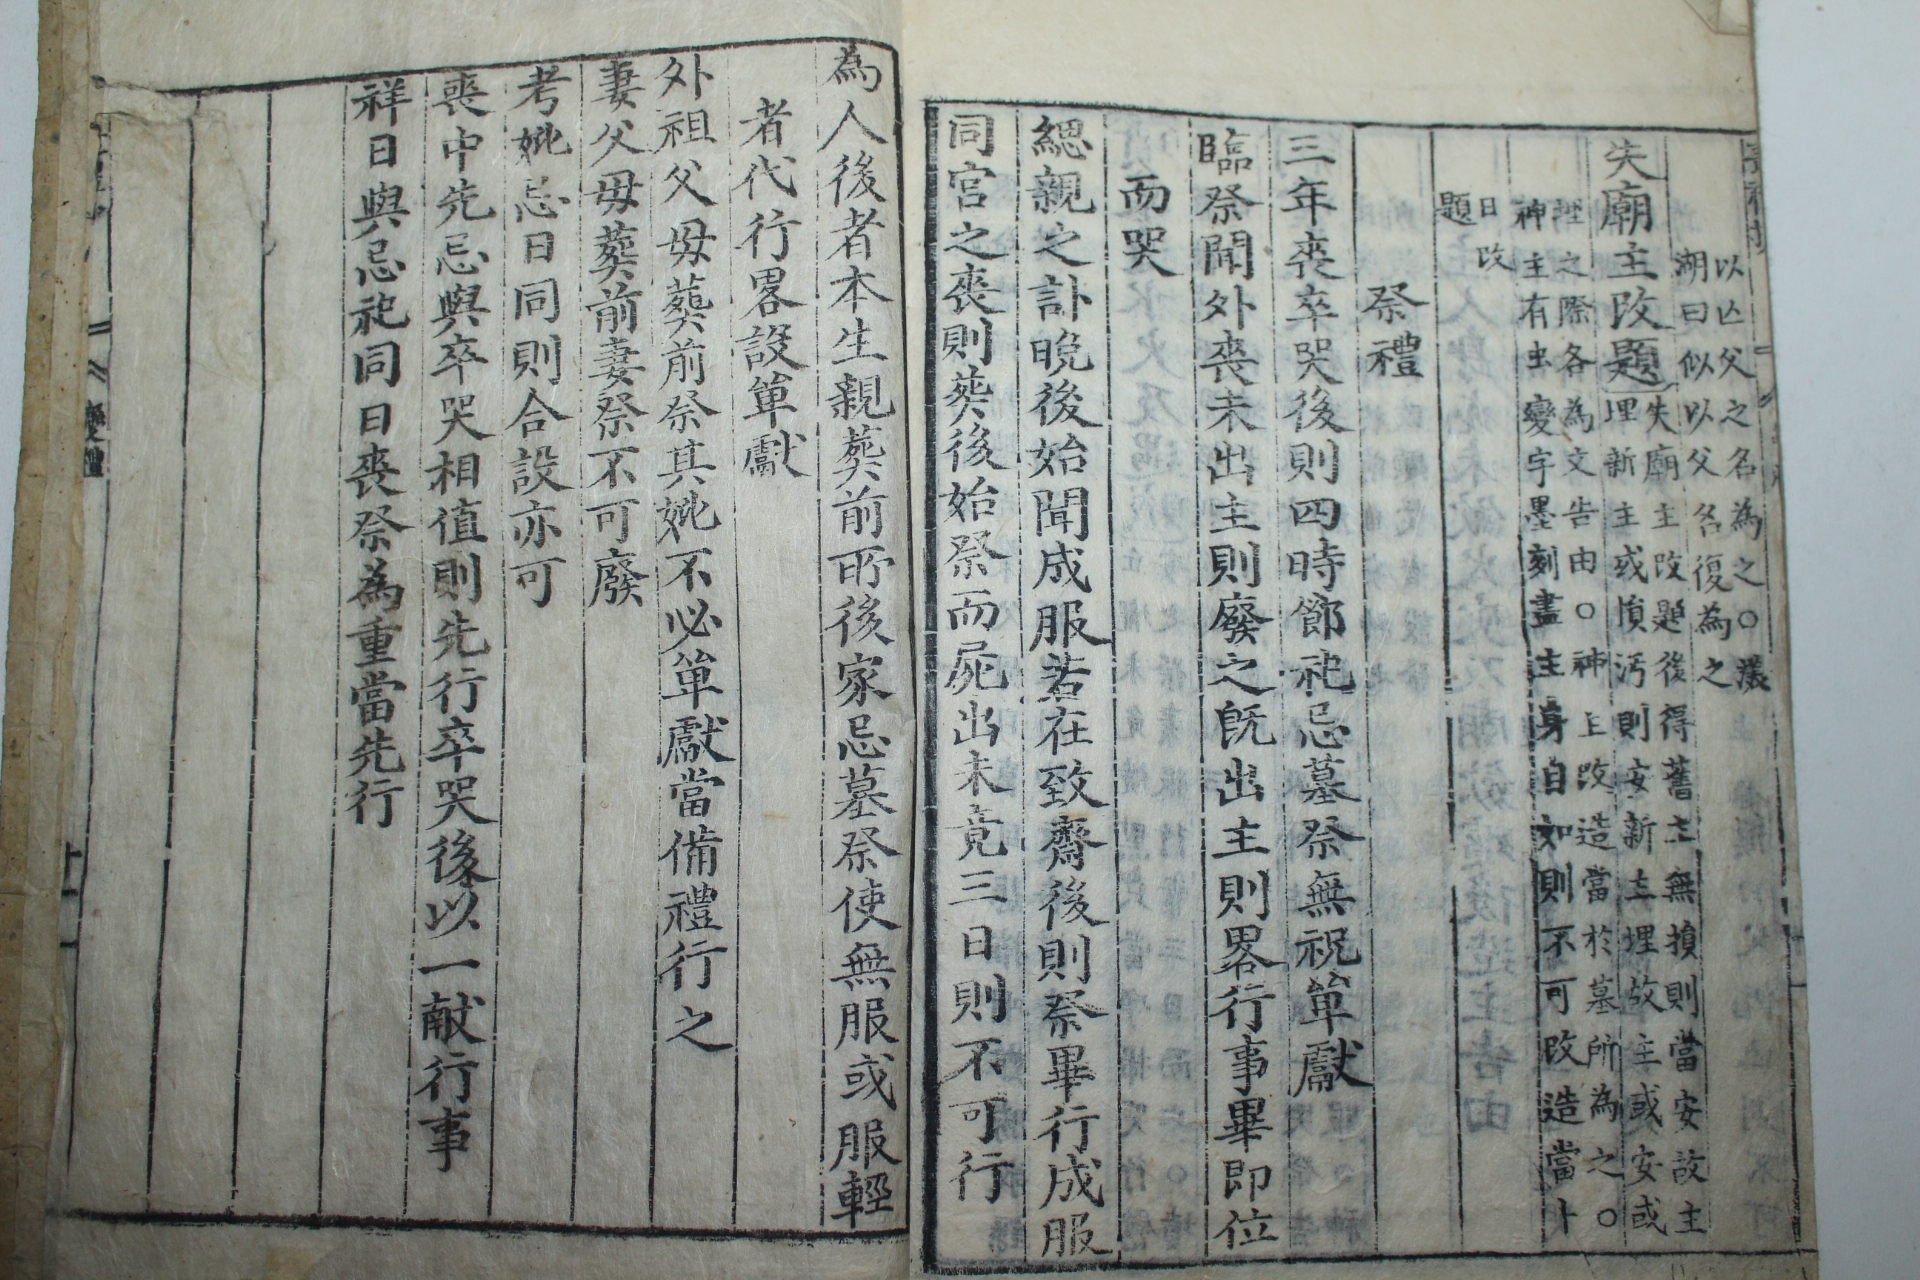 以亡父之名為之○漢
湖曰似以父名復為之
失廟主改題
失廟主改題後得舊主無損則當安故主
埋新主或憤汚則安新主埋故主或安或
埋之際各為文告由○神主改造當於墓所為之○
神主有虫變字墨刻盡主身自如則不可改造當卜
日改
題
祭禮
三年喪卒哭後則四時節祀忌墓祭無祝單獻
臨祭聞外喪未出主則廢之旣出主則畧行事畢即位
而哭
緦親之訃晩後始聞成服若在致齋後則祭畢行成服
同宮之喪則葬後始祭而屍出未竟三日則不可行
為人後者本生親葬前所後家忌墓祭使無服或服輕
者代行畧設單獻
外祖父母葬前祭其妣不必單獻當備禮行之
妻父母葬前妻祭不可廢
考妣忌日同則合設亦可
喪中先忌與卒哭相值則先行卒哭後以一献行事
祥日與忌祀同日喪祭為重當先行
變禮
十一